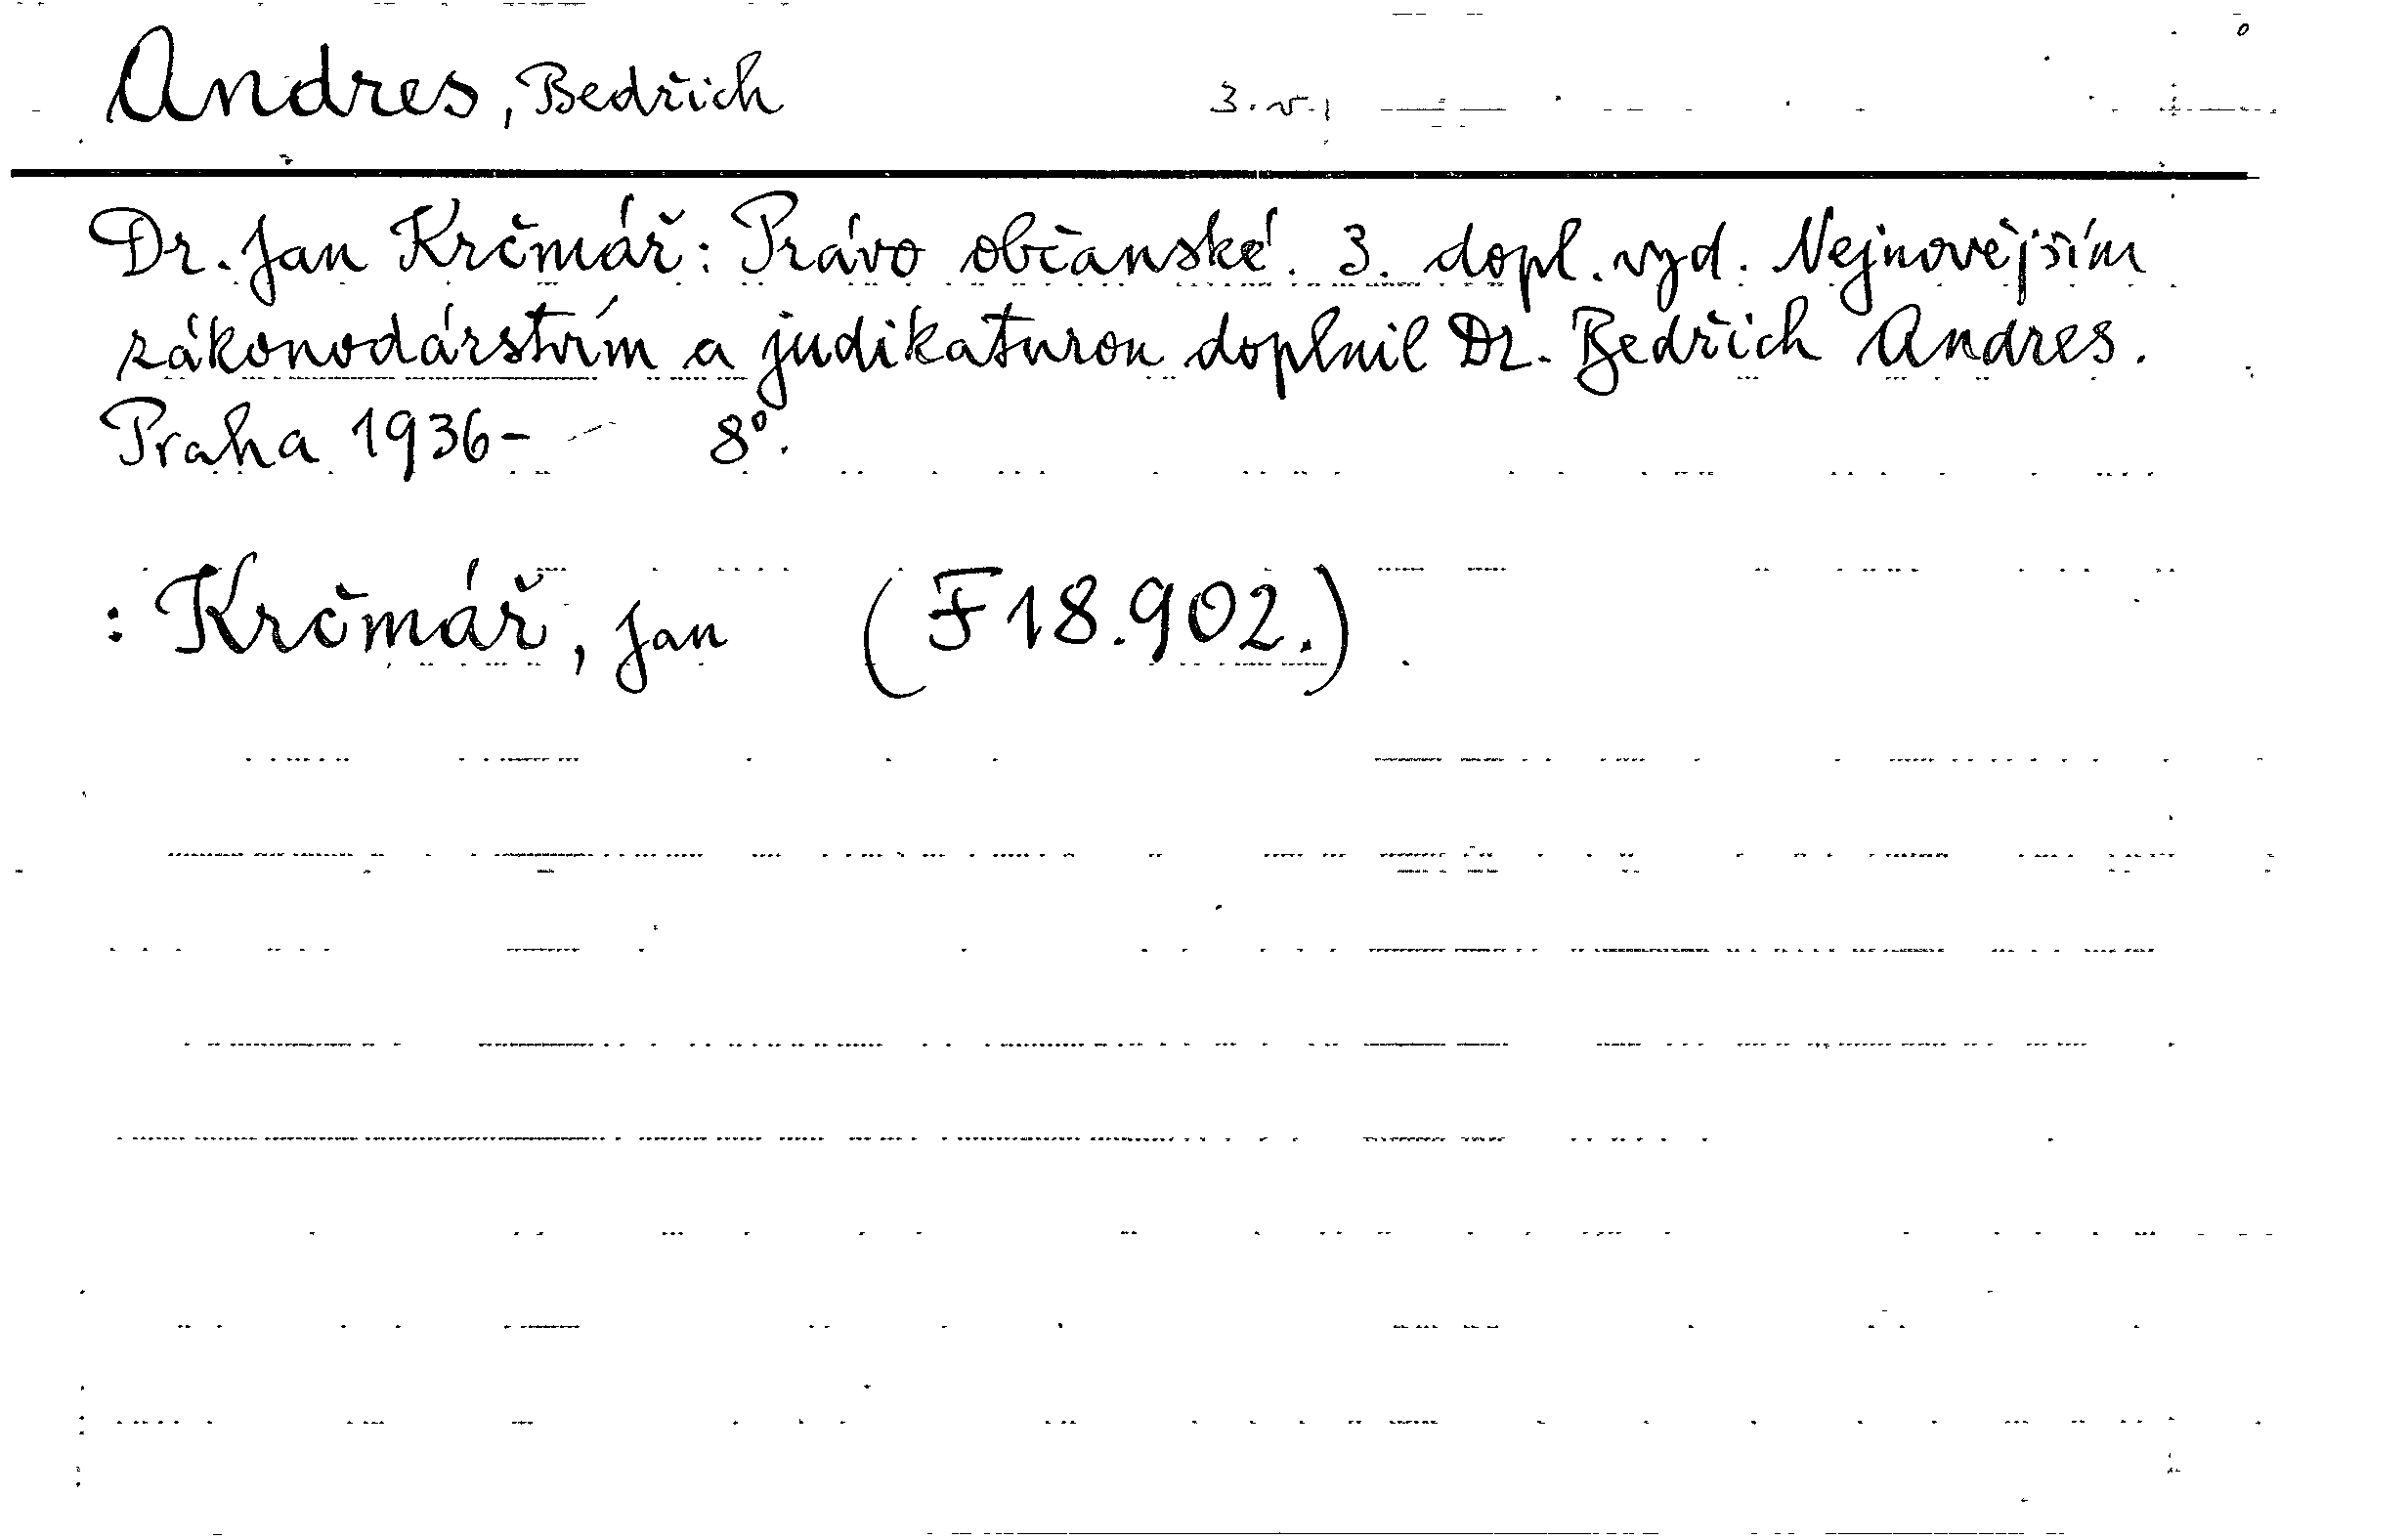 Andres, Bedřich 3. v.
Dr. Jan Krčmář: Právo občanské. 3. dopl. vyd. Nejnovějším
zákonodárstvím a judikaturou doplnil Dr. Bedřich Andres.
Praha 1936- 8°.
: Krčmář, Jan (F 18.902.)